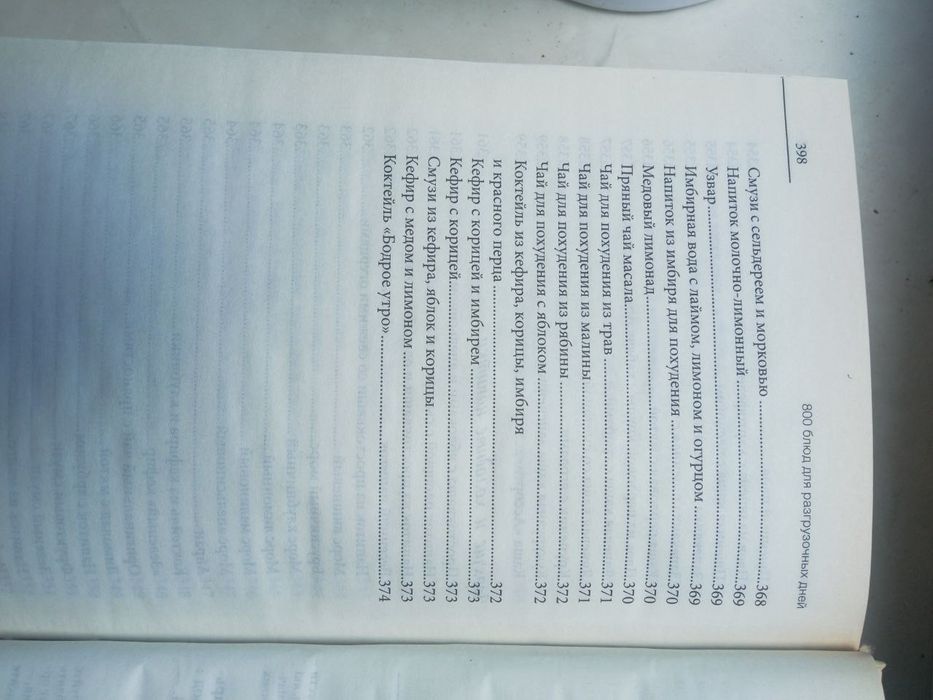 398
800 блюд для разгрузочных дней
Смузи с сельдереем и морковью ........ 368
Напиток молочно-лимонный ........ 369
Узвар ........ 369
Имбирная вода с лаймом, лимоном и огурцом ........ 369
Напиток из имбиря для похудения ........ 370
Медовый лимонад ........ 370
Пряный чай масала ........ 370
Чай для похудения из трав ........ 371
Чай для похудения из малины ........ 371
Чай для похудения из рябины ........ 372
Чай для похудения с яблоком ........ 372
Коктейль из кефира, корицы, имбиря
и красного перца ........ 372
Кефир с корицей и имбирем ........ 373
Кефир с корицей ........ 373
Смузи из кефира, яблок и корицы ........ 373
Кефир с медом и лимоном ........ 373
Коктейль «Бодрое утро» ........ 374